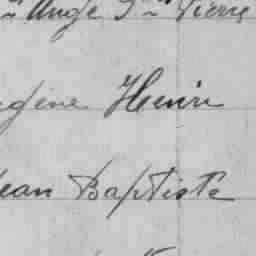 Ange Pierre
gène Henin
Jean Baptiste